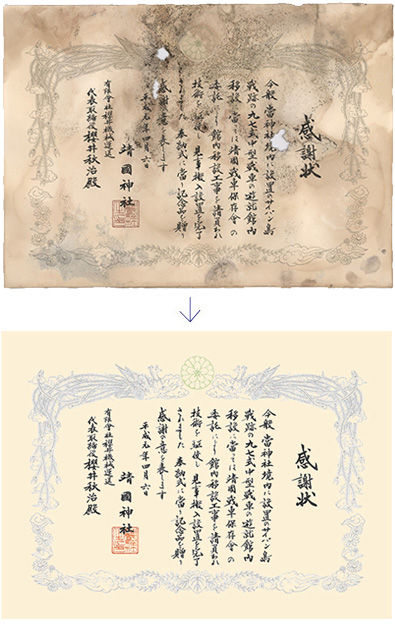 感謝状
今般 當神社境内に設置のサイパン島
戦跡の九七式中型戦車の遊就館内
移設 當っては靖國戦車保存會の
委託により館内移設工事を請負われ
技術を駆使し見事搬入設置を完了
されました 奉納式に當り記念品を贈り
感謝 意を表します
年四月六日
靖國神社
有限會社櫻井機械運送
代表取締役櫻井秋治殿
感謝状
今般 當神社境内に設置のサイパン島
戦跡の九七式中型戦車の遊就館内
移設に當っては靖國戦車保存會の
委託により館内移設工事を請負われ
技術を駆使し見事搬入設置を完了
されました 奉納式に當り記念品を贈り
感謝の意を表します
平成元年四月六日
靖國神社
有限會社櫻井機械運送
代表取締役櫻井秋治殿